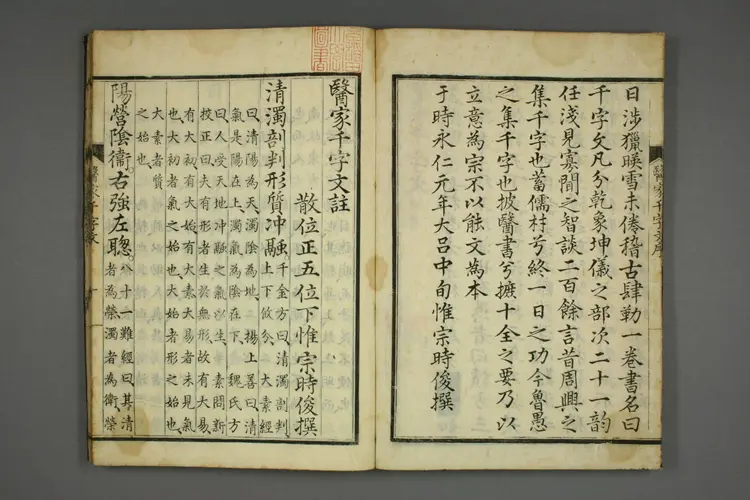 日涉獵映雪未倦稽古肆勤一卷書名曰
千字文凡分乾象坤儀之部次二十一韵
任淺見寡聞之智談二百餘言昔周興之
集千字也萬儒村兮終一日之功今魯愚
之集千字也披醫書兮摭十全之要乃以
立意為宗不以能文為本
于時永仁元年大呂中旬惟宗時俊撰
醫家千字文註
散位正五位下惟宗時俊撰
清濁剖判形質冲融千金方曰清濁剖判
上下攸分大素經
曰清陽為天濁陰為地楊上善曰清
氣是陽在上濁氣為陰在下魏氏方
曰人受天地冲融之氣以生素問新
校正曰夫有形者生於無形故有大易
有大初有大始有大素大易者未見氣
也大初者氣之始也大始者形之始也
大素者質
之始也
陽營陰衞右強左聰八十一難經曰其清
者為榮濁者為衞榮